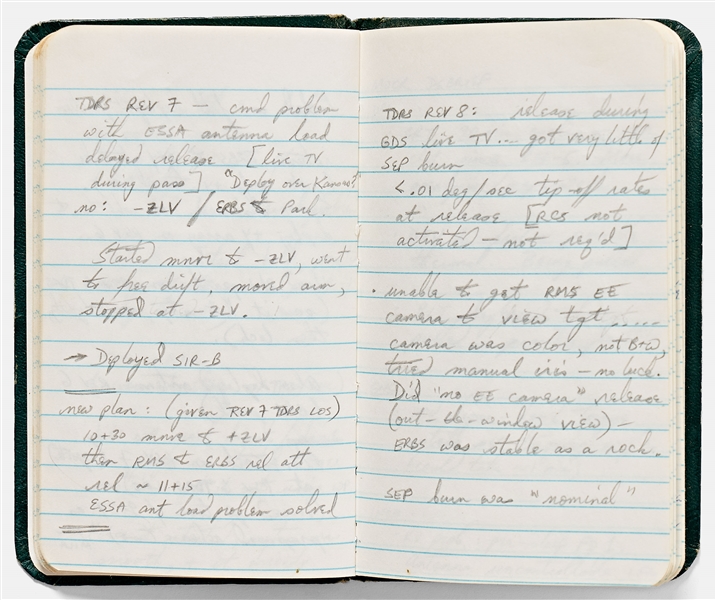 TDRS REV 7 — cmd problem
with ESSA antenna load
delayed release [live TV
during pass] "Deploy over Kansas?"
no: -ZLV / ERBS to Park.
Started mnvr to -ZLV, went
to free drift, moved arm,
stopped at -ZLV.
→ Deployed SIR-B
new plan: (given REV 7 TDRS LOS)
10+30 mnvr to +ZLV
then RMS to ERBS rel att
rel ~ 11+15
ESSA ant load problem solved
TDRS REV 8: release during
GDS live TV... got very little of
SEP burn
<.01 deg/sec tip-off rates
at release [RCS not
activated — not req'd]
• unable to get RMS EE
camera to VIEW tgt .....
camera was color, not B+W,
tried manual iris — no luck.
Did "no EE camera" release
(out-the-window view) —
ERBS was stable as a rock.
SEP burn was "nominal"